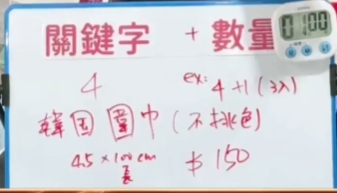 關鍵字 + 數量
01:00
4 ex: 4+1(3入)
韓国圍巾(不挑色)
45×100cm $150
長